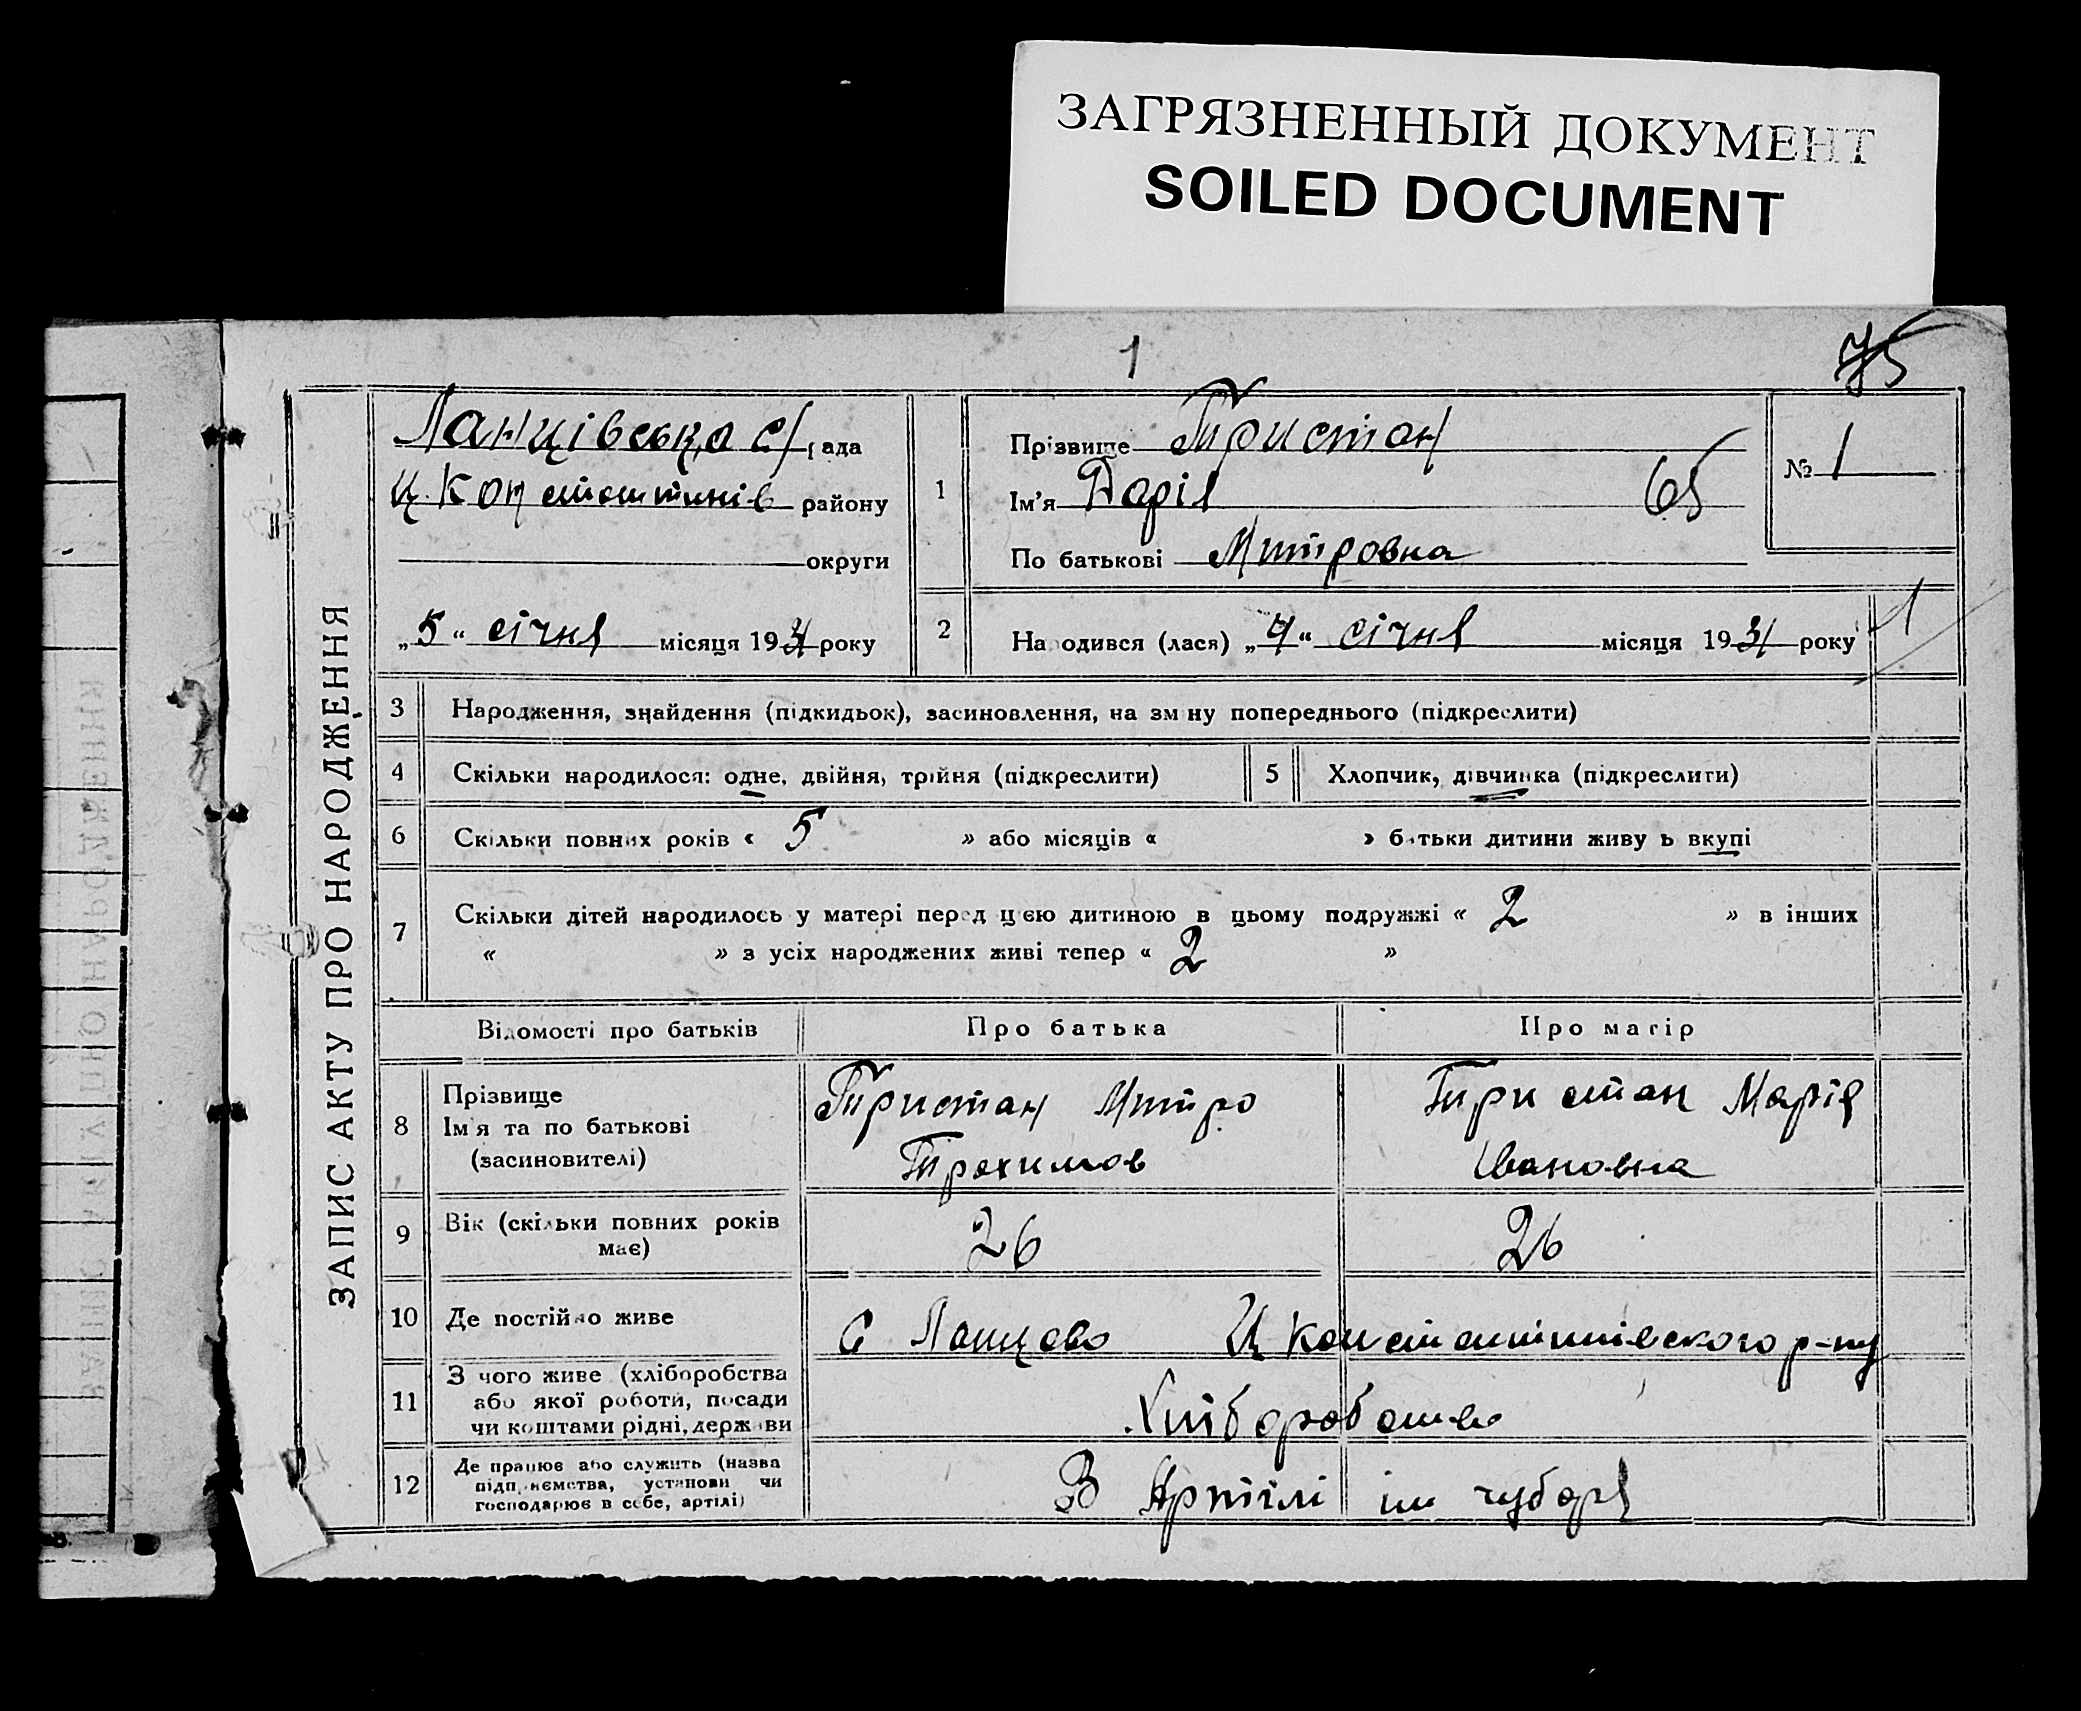 ЗАГРЯЗНЕННЫЙ ДОКУМЕНТ
SOILED DOCUMENT
1
75
ЗАПИС АКТУ ПРО НАРОДЖЕННЯ
Ланцівська с/рада
Ц. Константинів району
округи
„5“ січня місяця 1931 року
1
Прізвище Тристан
Ім'я Дарія
65
По батькові Митровна
№ 1
2
Народився (лася) „4“ січня місяця 1931 року
1
3 Народження, знайдення (підкидьок), засиновлення, на зміну попереднього (підкреслити)
4 Скільки народилося: одне, двійня, трійня (підкреслити)
5 Хлопчик, дівчинка (підкреслити)
6 Скільки повних років « 5 » або місяців « » батьки дитини живуть вкупі
7 Скільки дітей народилось у матері перед цією дитиною в цьому подружжі « 2 » в інших
« » з усіх народжених живі тепер « 2 »
Відомості про батьків
Про батька
Про матір
8 Прізвище
Ім'я та по батькові
(засиновителі)
Тристан Митро
Трохимов
Тристан Марія
Івановна
9 Вік (скільки повних років
має)
26
26
10 Де постійно живе
с Ланцово Ц Константинівського р-ну
11 З чого живе (хліборобства
або якої роботи, посади
чи коштами рідні, держави
Хліборобство
12 Де працює або служить (назва
підприємства, установи чи
господарює в себе, артілі)
В Артілі ім Чубаря